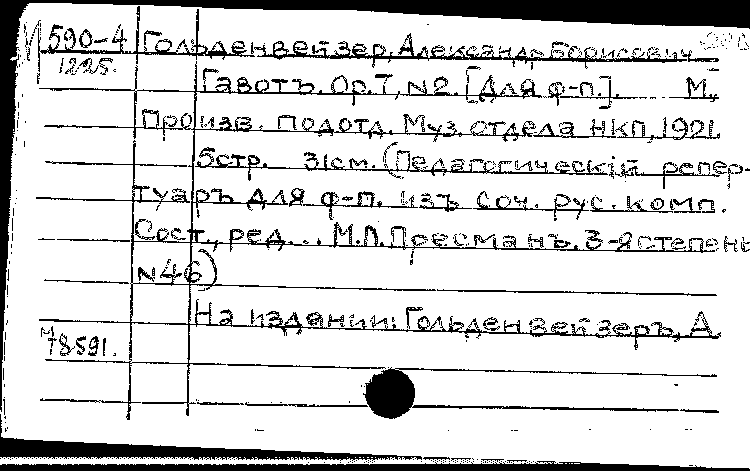 590-4 Гольденвейзер, Александр Борисович
1225.
Гавотъ. Ор. 7, N2. [Для ф-п.]. М.,
Произв. подотд. Муз. отдела НКП, 1921.
5стр. 31см. (Педагогическiй репер-
туаръ для ф-п. изъ соч. рус. комп.
Сост., ред... М.Л. Пресманъ. 3-я степень
N46)
На издании: Гольденвейзеръ, А.
М
78591.